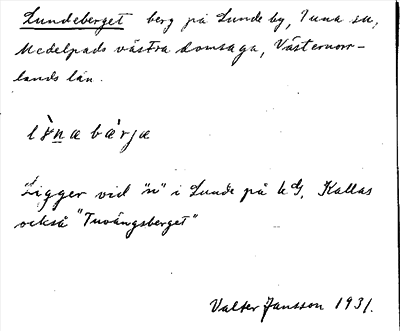 Lundeberget berg på Lunde by, Tuna sn,
Medelpads västra domsaga, Västernorr-
lands län.
Ligger vid "n" i Lunde på kG. Kallas
också "Tuvängsberget"
Valter Jansson 1931.